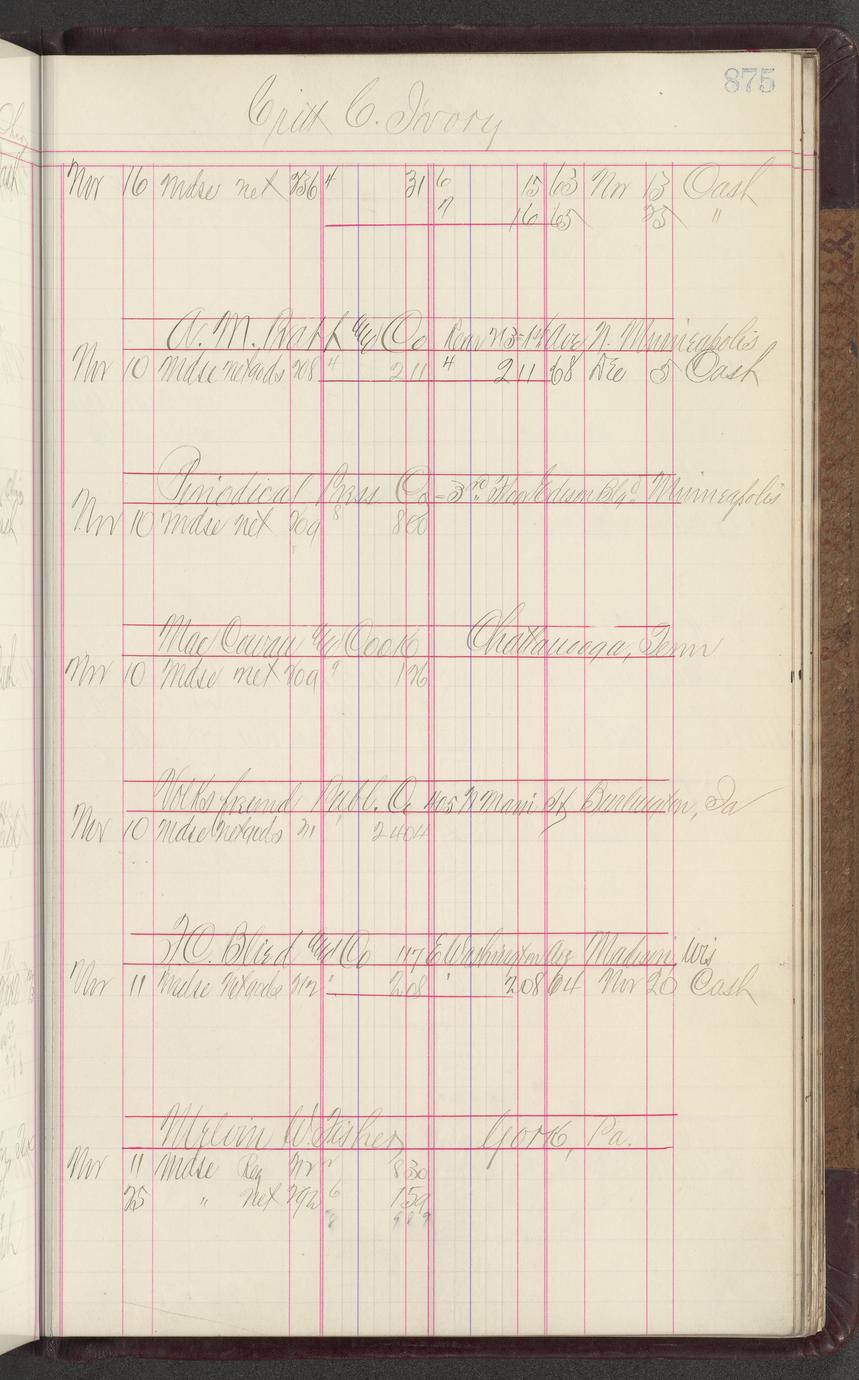 875
C. Ivory
Nov 16 Mdse net 236 4 31 6 15 63 Nov 13 Cash
7 16 65 25 "
A. M. & Co Rear 713-14 Ave N. Minneapolis
Nov 10 Mdse net gds 208 4 211 4 211 68 Dec 5 Cash
Periodical Press Co - 3rd Floor Edison Bldg Minneapolis
Nov 10 Mdse net 209 8 800
Mac Cowan & Cook Chattanooga, Tenn
Nov 10 Mdse net 209 9 126
Volksfreund Publ. Co 405 N Main St Burlington, Ia
Nov 10 Mdse net gds 211 " 2404
F. C. Blied and Co 117 E Washington Ave Madison, Wis
Nov 11 Mdse net gds 212 " 208 " 208 64 Nov 20 Cash
Melvin W. Fisher York, Pa.
Nov 11 Mdse Reg 212 830
25 " net 292 6 159
989